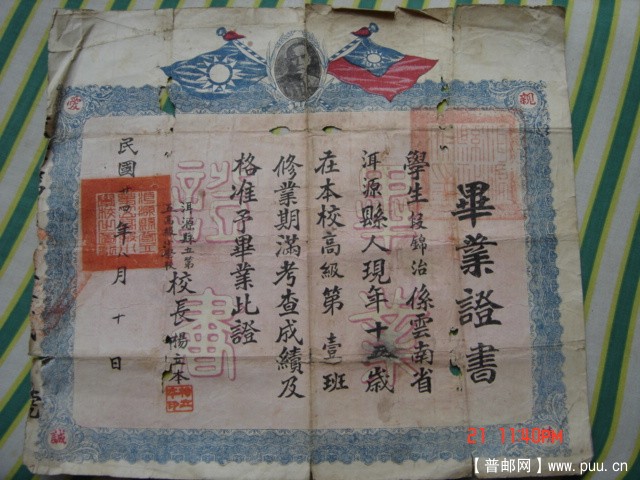 畢業證書
學生段錦治係雲南省
洱源縣人現年十五歲
在本校高級第壹班
修業期滿考查成績及
格准予畢業此證
洱源縣立第
校長楊立本
民國廿四年八月十日
愛
親
誠
畢業
證書
21 11:40AM
【普邮网】www.puu.cn